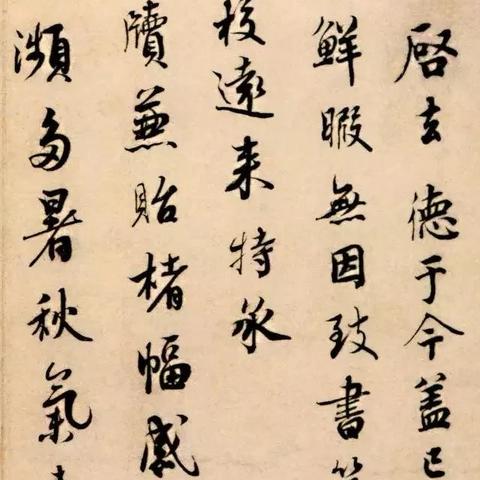 啓去德于今盖已
鮮暇無因致書
校遠来特承
牘兼貽楮幅感
瀕多暑秋氣